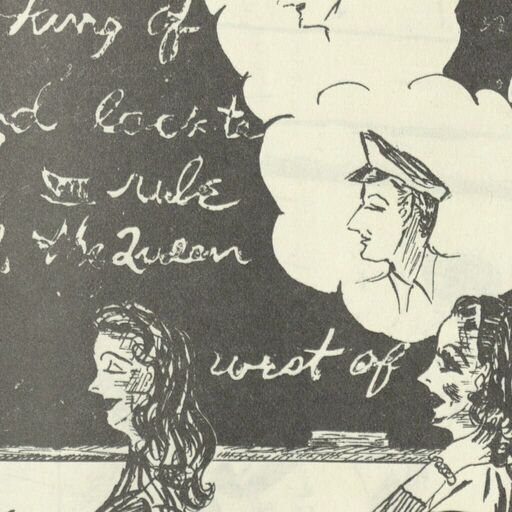 king of
d back to
VIII rule
the Queen
west of